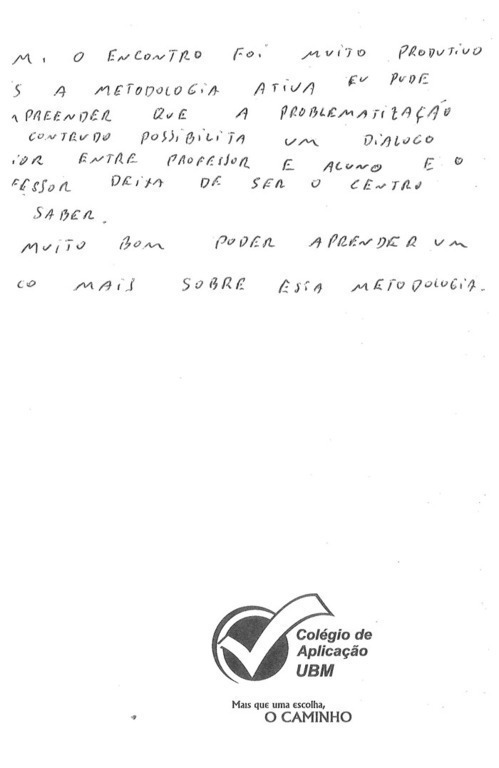 M, O ENCONTRO FOI MUITO PRODUTIVO
S A METODOLOGIA ATIVA EU PUDE
APREENDER QUE A PROBLEMATIZAÇÃO
CONTEUDO POSSIBILITA UM DIALOGO
IOR ENTRE PROFESSOR E ALUNO E O
FESSOR DEIXA DE SER O CENTRO
SABER.
MUITO BOM PODER APRENDER UM
CO MAIS SOBRE ESSA METODOLOGIA.
Colégio de
Aplicação
UBM
Mais que uma escolha,
O CAMINHO